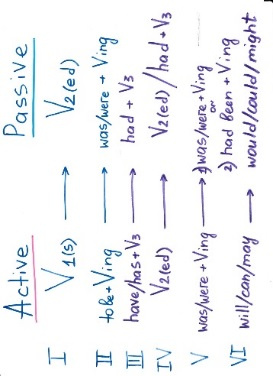 Active Passive
I V1(s) → V2(ed)
II to be + Ving → was/were + Ving
III have/has + V3 → had + V3
IV V2(ed) → V2(ed)/had + V3
V was/were + Ving → 1) was/were + Ving
or
2) had Been + Ving
VI will/can/may → would/could/might